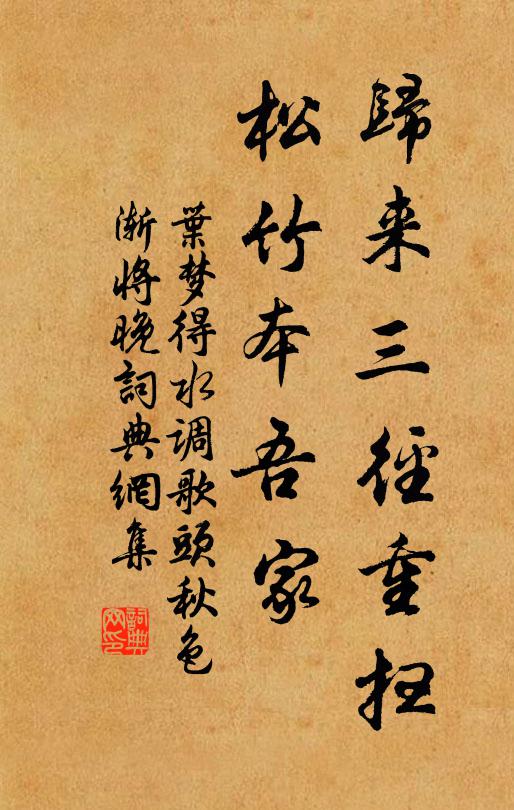 歸来三徑重扫
松竹本吾家
葉梦得水调歌頭秋色
渐将晚詞典網集
詞典
网印